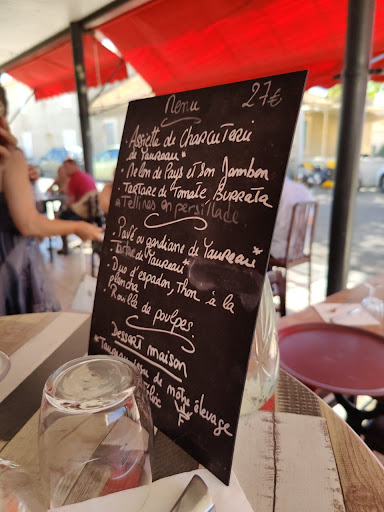 Menu 27€
Assiette de Charcuterie
de Taureau*
- Melon de Pays et Son Jambon
- Tartare de Tomate, Burrata
- Tellines en persillade
- Pavé ou gardiane de Taureau*
- Tartare de Taureau*
- Duo d'espadon, Thon à la
plancha
- Rouille de poulpes
Dessert maison
*Taureaux de notre élevage